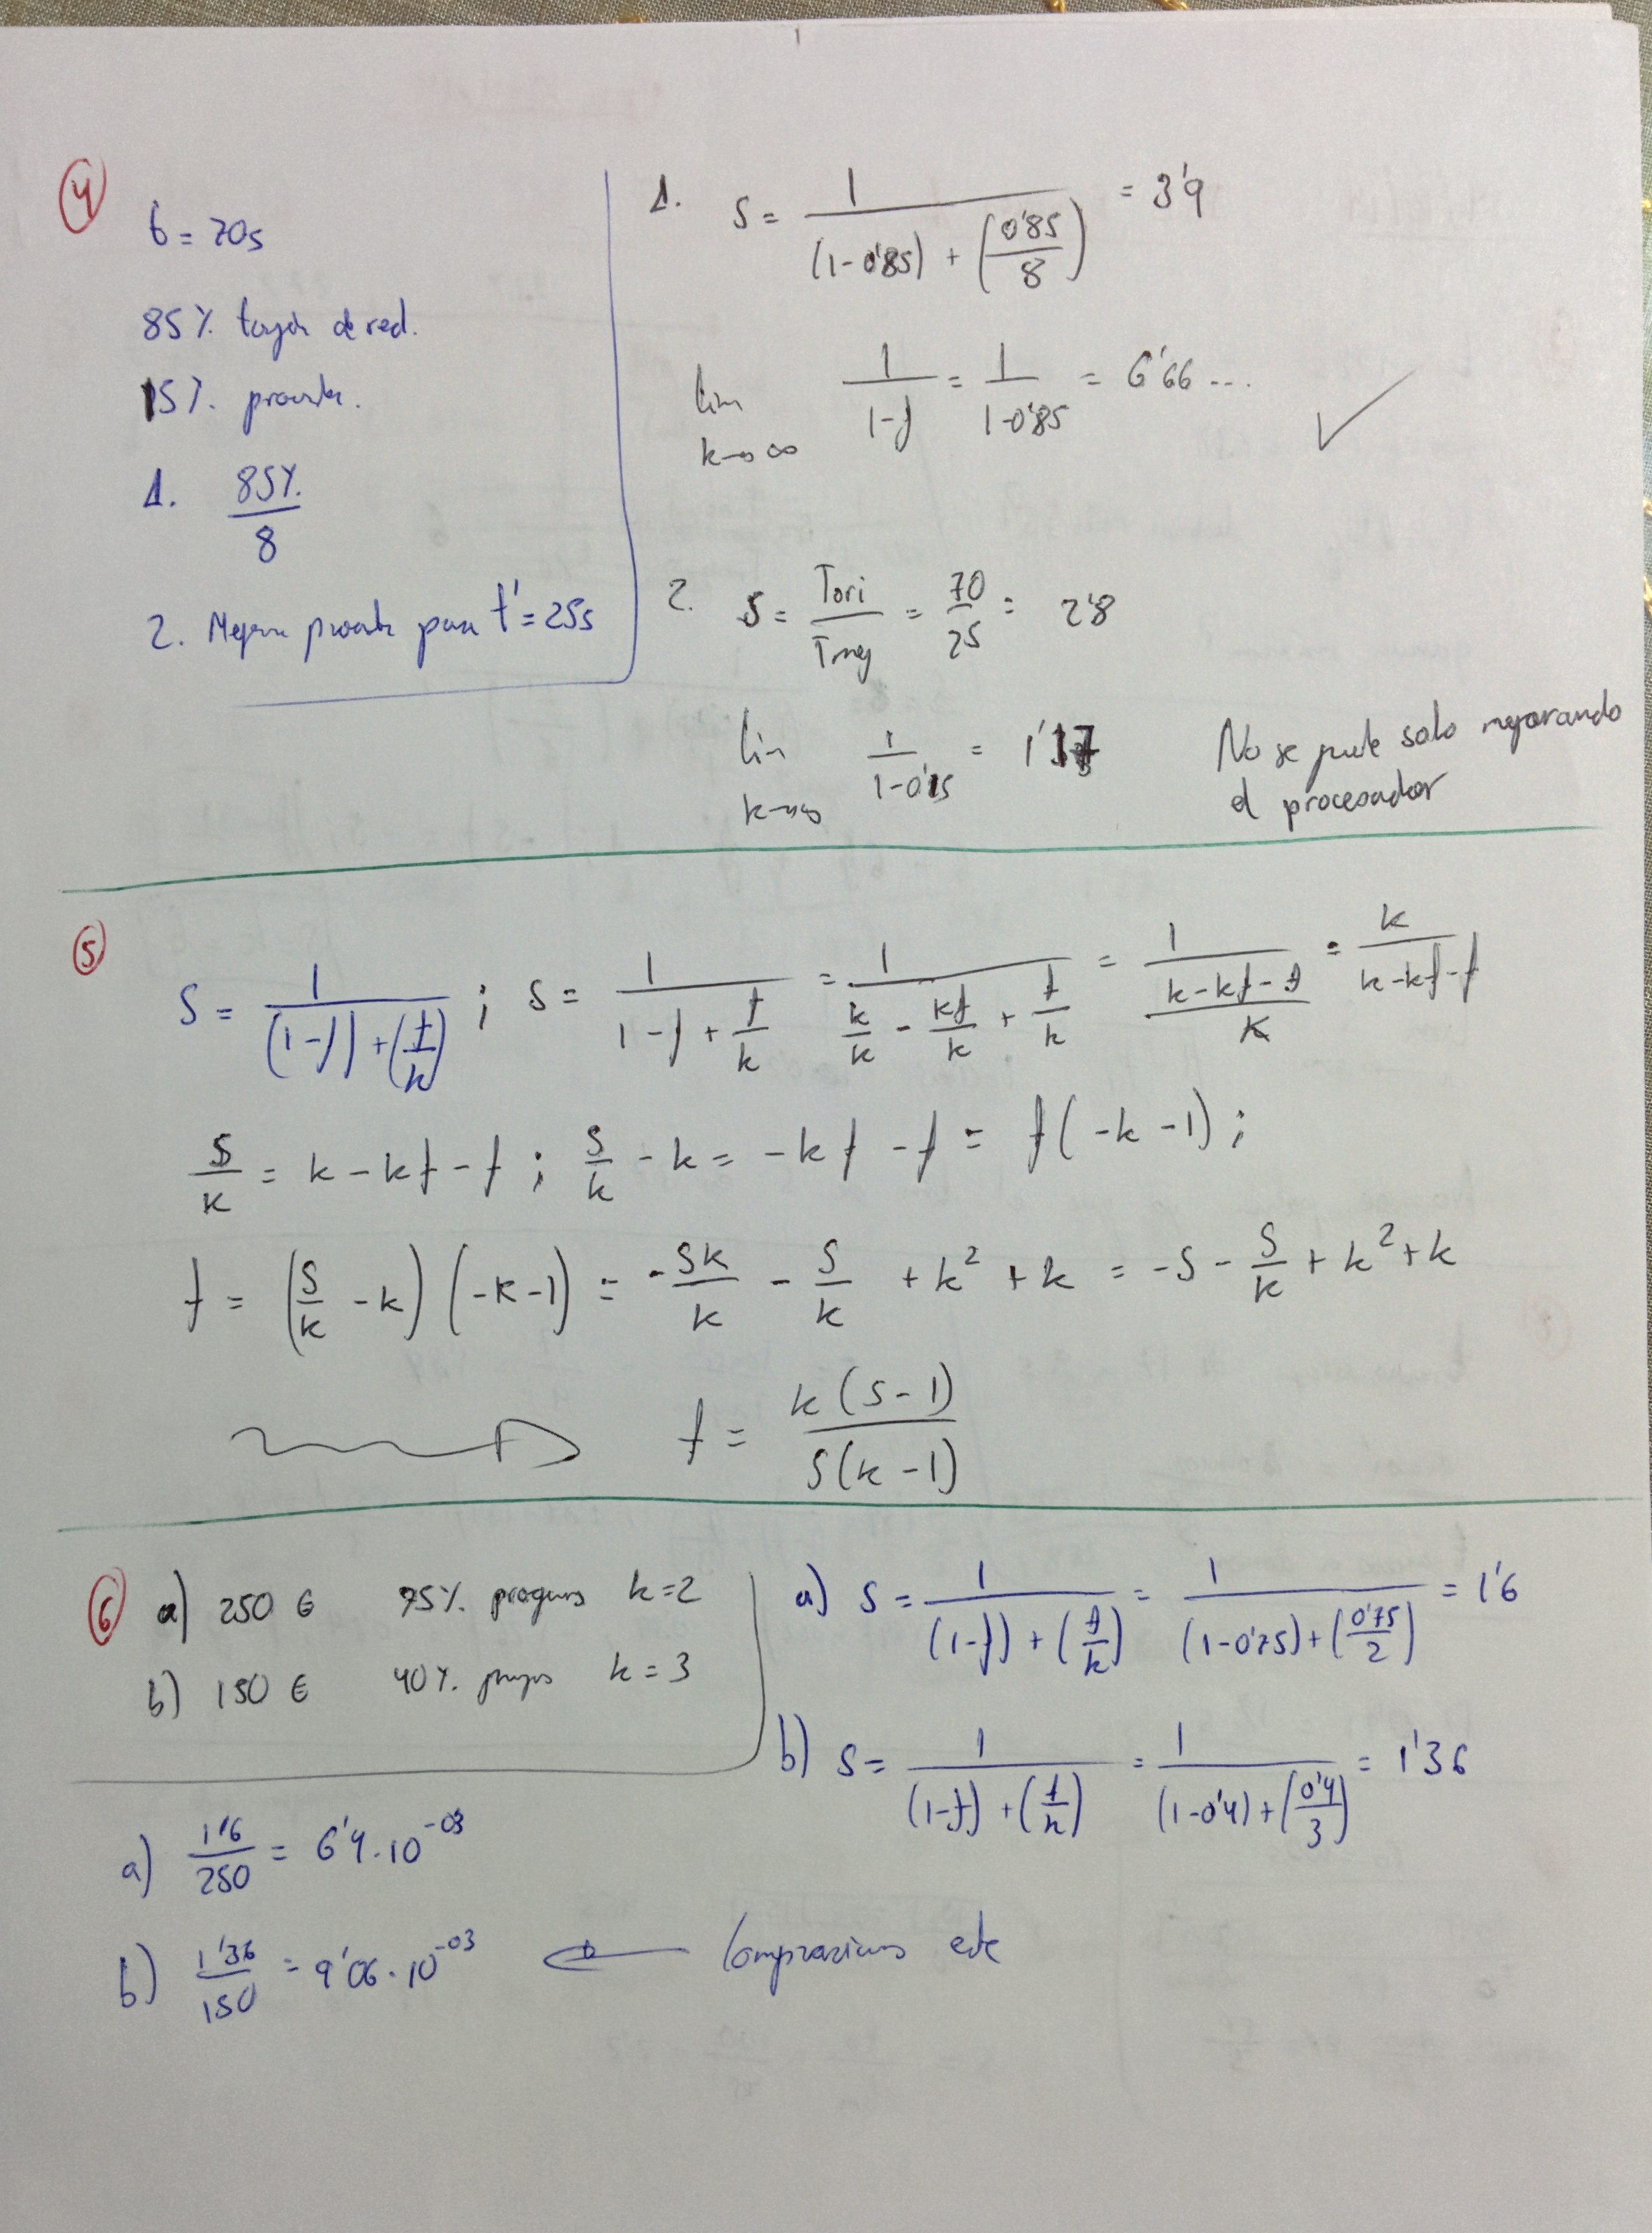 4
t = 70s
85% tarjeta de red.
15% procesador.
1. 85% / 8
2. Mejora procesador para t' = 25s
1. S = 1 / ((1-0'85) + (0'85/8)) = 3'9
lim k→∞ 1/(1-f) = 1/(1-0'85) = 6'66... ✓
2. S = Tori/Tmej = 70/25 = 2'8
lim k→∞ 1/(1-0'15) = 1'17
No se puede solo mejorando
el procesador
5
S = 1 / ((1-f) + (f/k)) ; S = 1 / (1-f + f/k) = 1 / (k/k - kf/k + f/k) = 1 / ((k-kf-f)/k) = k / (k-kf-f)
S/k = k - kf - f ; S/k - k = -kf - f = f(-k-1) ;
f = (S/k - k)(-k-1) = -Sk/k - S/k + k² + k = -S - S/k + k² + k
f = k(S-1) / S(k-1)
6
a) 250 € 75% programas k=2
b) 150 € 40% k=3
a) S = 1 / ((1-f) + (f/k)) = 1 / ((1-0'75) + (0'75/2)) = 1'6
b) S = 1 / ((1-f) + (f/k)) = 1 / ((1-0'4) + (0'4/3)) = 1'36
a) 1'6/250 = 6'4·10⁻⁰³
b) 1'36/150 = 9'06·10⁻⁰³ ← Compraríamos este